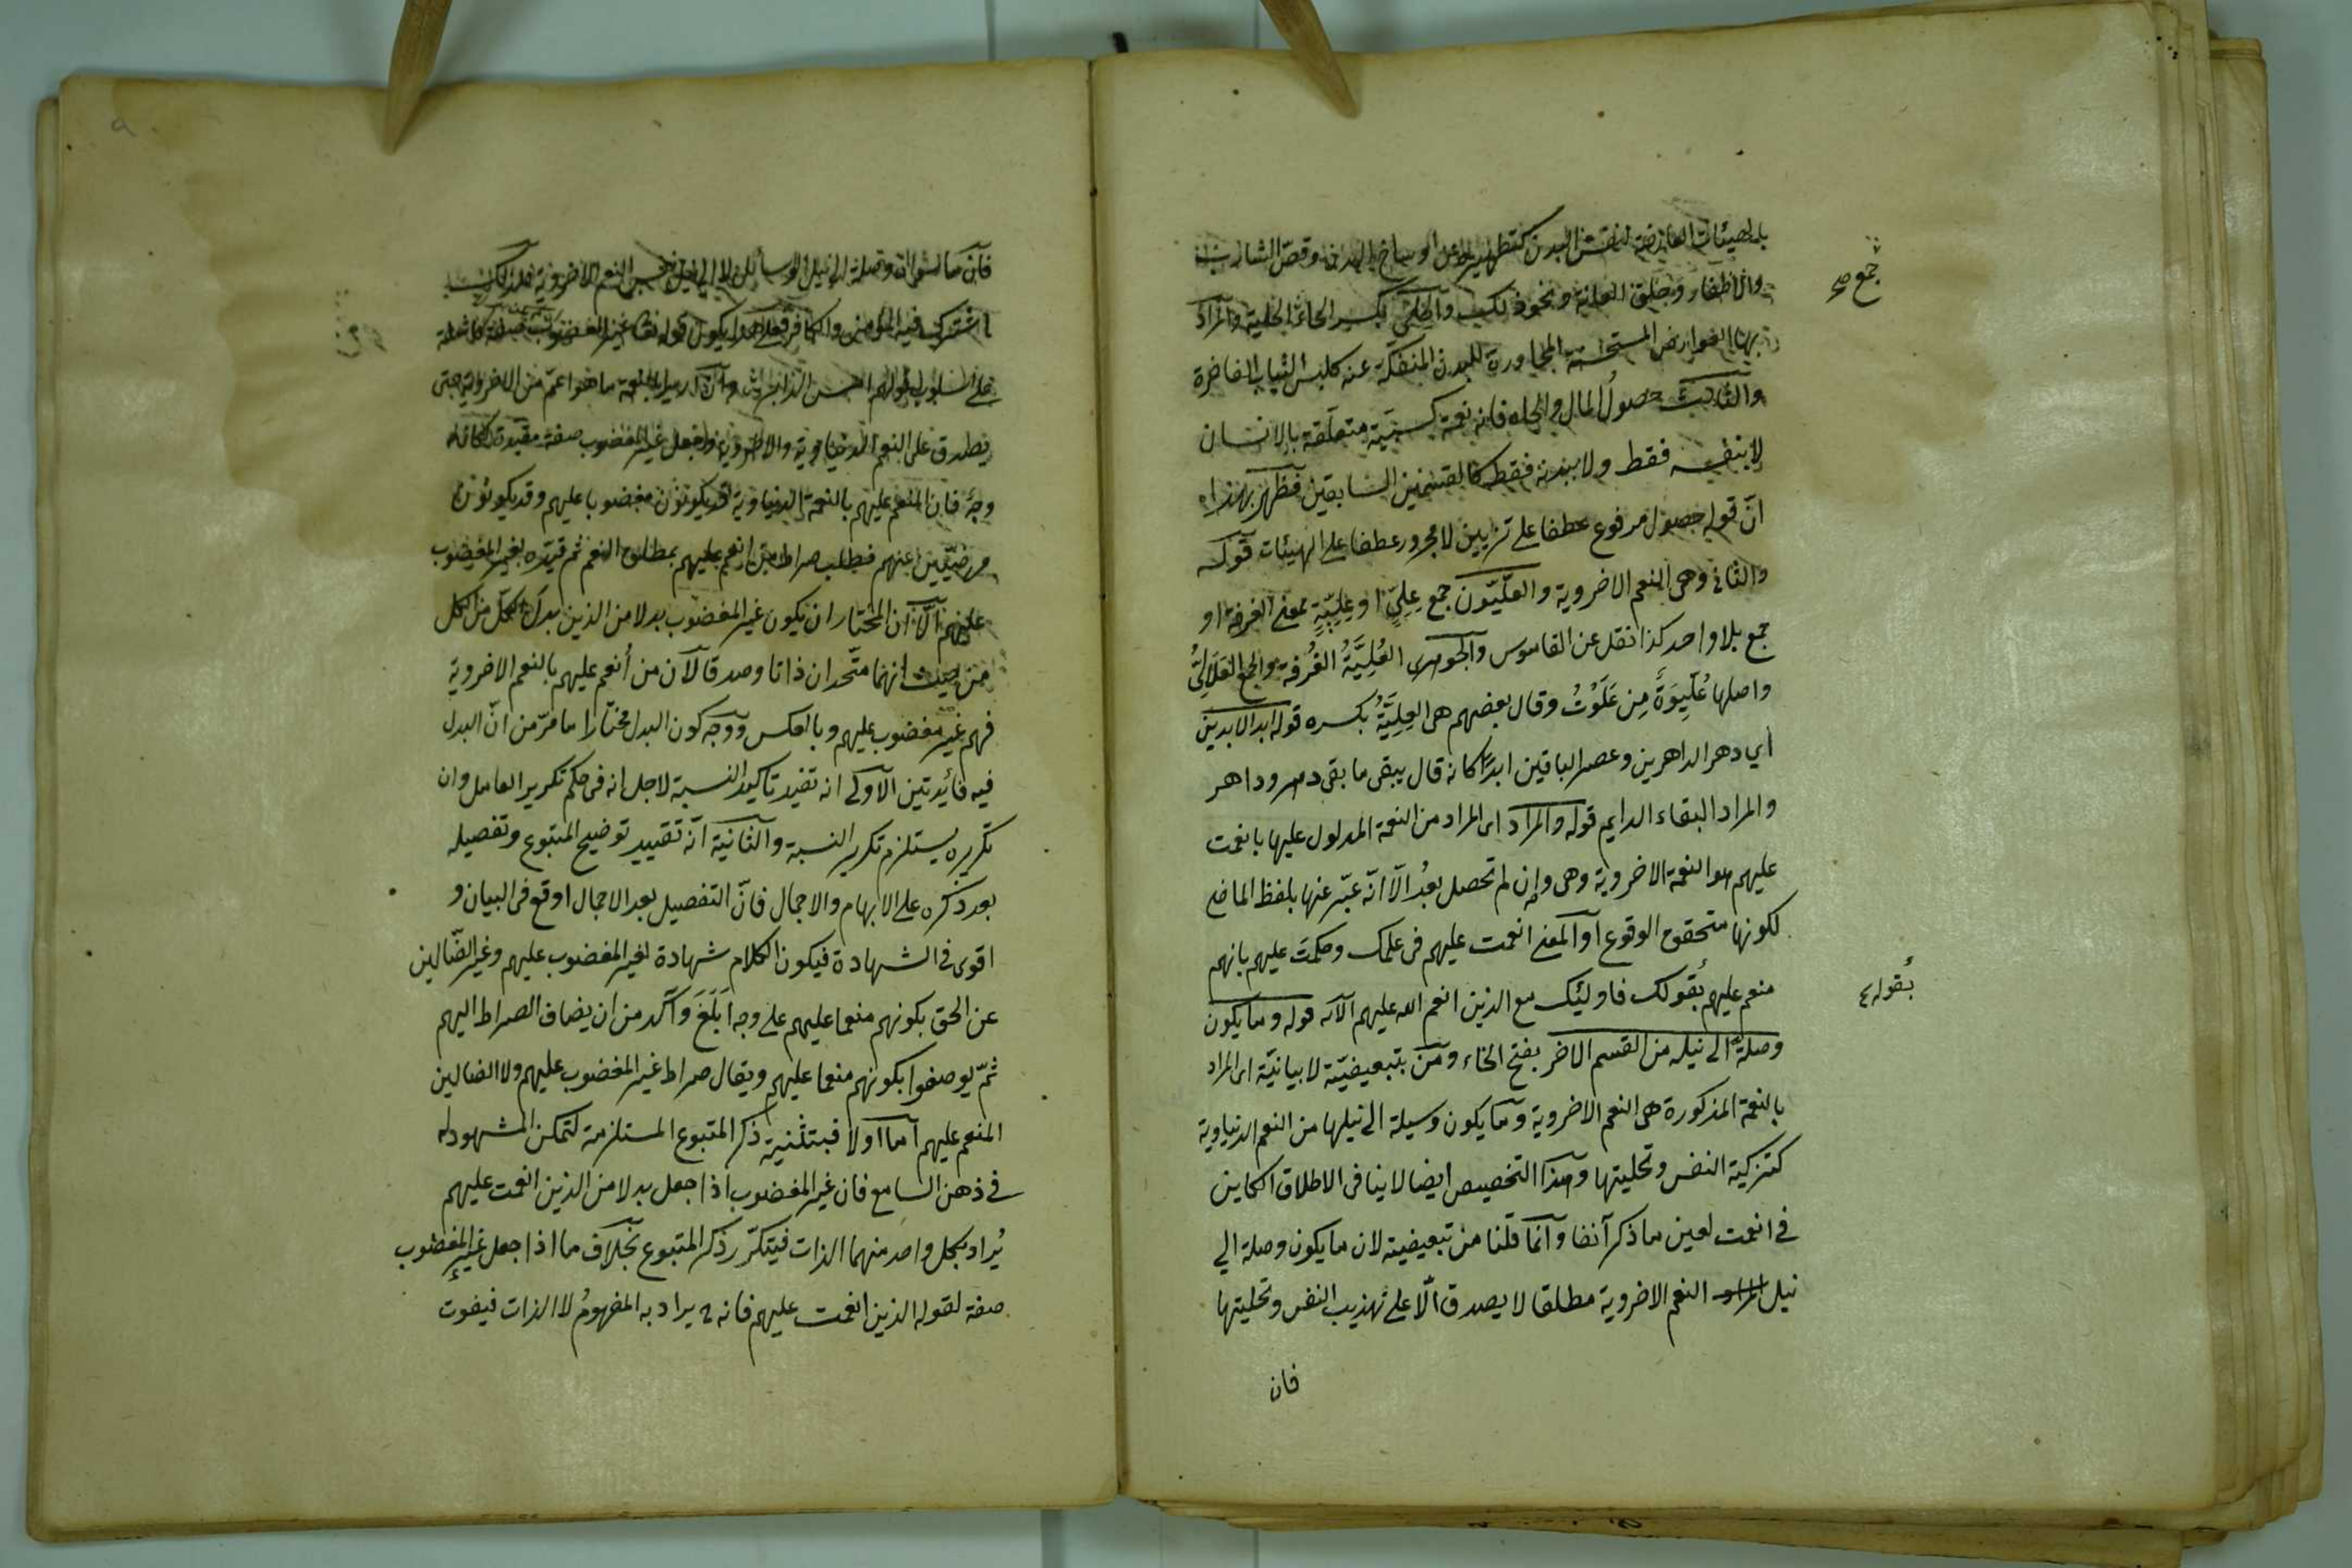 بالهيئات العارضة لنفس البدن كتطهيره عن اوساخ البدن وقص الشارب
والاظفار وحلق العانة ونحو ذلك والحلي بكسر الحاء الحلية والمراد
بها العوارض المستحسنة المجاورة للبدن المنفكة عنه كلبس الثياب الفاخرة
والثالث حصولُ المال والجاه فانه نعمة كسبية متعلقة بالانسان
لا بنفسه فقط ولا ببدنه فقط كالقسمين السابقين فظهر بهذا
انّ قوله حصول مرفوع عطفا على تزيين لا مجرور عطفا على الهيئات قوله
والثاني وهى النعم الاخروية والعلّيّون جمع عِلِيّ او عِلِيّيّةٍ بمعنى الغرفة او
جمع بلا واحد كذا نقل عن القاموس والجوهرى العُلِيَّةُ الغُرفة والجمع العَلَالِيُّ
واصلها عُلّيوَةً مِن عَلَوْتُ وقال بعضهم هى العِلِيَّةُ بكسره قوله ابد الابدين
أي دهر الداهرين وعصر الباقين ابدًا كانه قال يبقى ما بقى دهر وداهر
والمراد البقاء الدايم قوله والمراد اى المراد من النعمة المدلول عليها بانعمت
عليهم هو النعمة الاخروية وهى وإن لم تحصل بعدُ الّا انّه عبّر عنها بلفظ الماضى
لكونها متحقق الوقوع او المعنى انعمت عليهم فى علمك وحكمتَ عليهم بانهم
منعم عليهم بُقولك فاولئك مع الذين انعم الله عليهم الآيه قوله وما يكون
وصلة الى نيله من القسم الآخر بفتح الخاء ومن تبعيضيّة لا بيانيّة اى المراد
بالنعمة المذكورة هى النعم الاخروية وما يكون وسيلة الى نيلها من النعم الدنياوية
كتزكية النفس وتحليتها وهذا التخصيص ايضا لا ينافى الاطلاق الكاين
فى انعمت لعين ما ذكر آنفا وانما قلنا من تبعيضية لان ما يكون وصلة الي
نيل النعم الاخروية مطلقا لا يصدق الّا على تهذيب النفس وتحليتها
فان
جمع صح
بُقوله ع
٩
فان ما سواه وصلة الى نيل
اشترك فيه المؤمن والكافر فعلى هذا يكون قوله تعالى غير المغضوب صفة كاشفة
على اسلوب قولهم امس الدابر وان اريد بالنعمة ما هو اعم من الاخروية حتى
يصدق على النعم الدنياوية والاخروية وجعل غير المغضوب صفة مقيدة لكان له
وجهٌ فان المنعم عليهم بالنعمة الدنياوية قد يكونون مغضوبا عليهم وقد يكونون
مرضيّين عنهم فيطلب صراط من انعم عليهم بمطلق النعم ثم قيّده بغير المغضوب
عليهم الّا ان المختار ان يكون غير المغضوب بدلا من الذين بدل الكلّ من الكل
من حيث انهما متّحدان ذاتا وصدقا لان من أنعم عليهم بالنعم الاخروية
فهم غير مغضوب عليهم وبالعكس ووجه كون البدل مختارا ما مرّ من انّ البدل
فيه فائدتين الاولى انه تفيد تاكيد النسبة لاجل انه فى حكم تكرير العامل وان
تكريره يستلزم تكرير النسبة والثانية انّه تقييد توضيح المتبوع وتفصيله
بعد ذكره على الابهام والاجمال فانّ التفصيل بعد الاجمال اوقع فى البيان و
اقوى فى الشهادة فيكون الكلام شهادة لغير المغضوب عليهم وغير الضّالين
عن الحق بكونهم منعما عليهم على وجه اَبلَغَ وآكد من ان يضاف الصراط اليهم
ثمّ يوصفوا بكونهم منعما عليهم ويقال صراط غير المغضوب عليهم ولا الضالين
المنعم عليهم اما اولا فبتثنية ذكر المتبوع المستلزمة لتمكن المشهود له
فى ذهن السامع فان غير المغضوب اذا جعل بدلا من الذين انعمت عليهم
يُراد بكل واحد منهما الذات فيتكرّر ذكر المتبوع بخلاف ما اذا جعل غير المغضوب
صفة لقوله الذين انعمت عليهم فانه ح يراد به المفهومُ لا الذات فيفوت